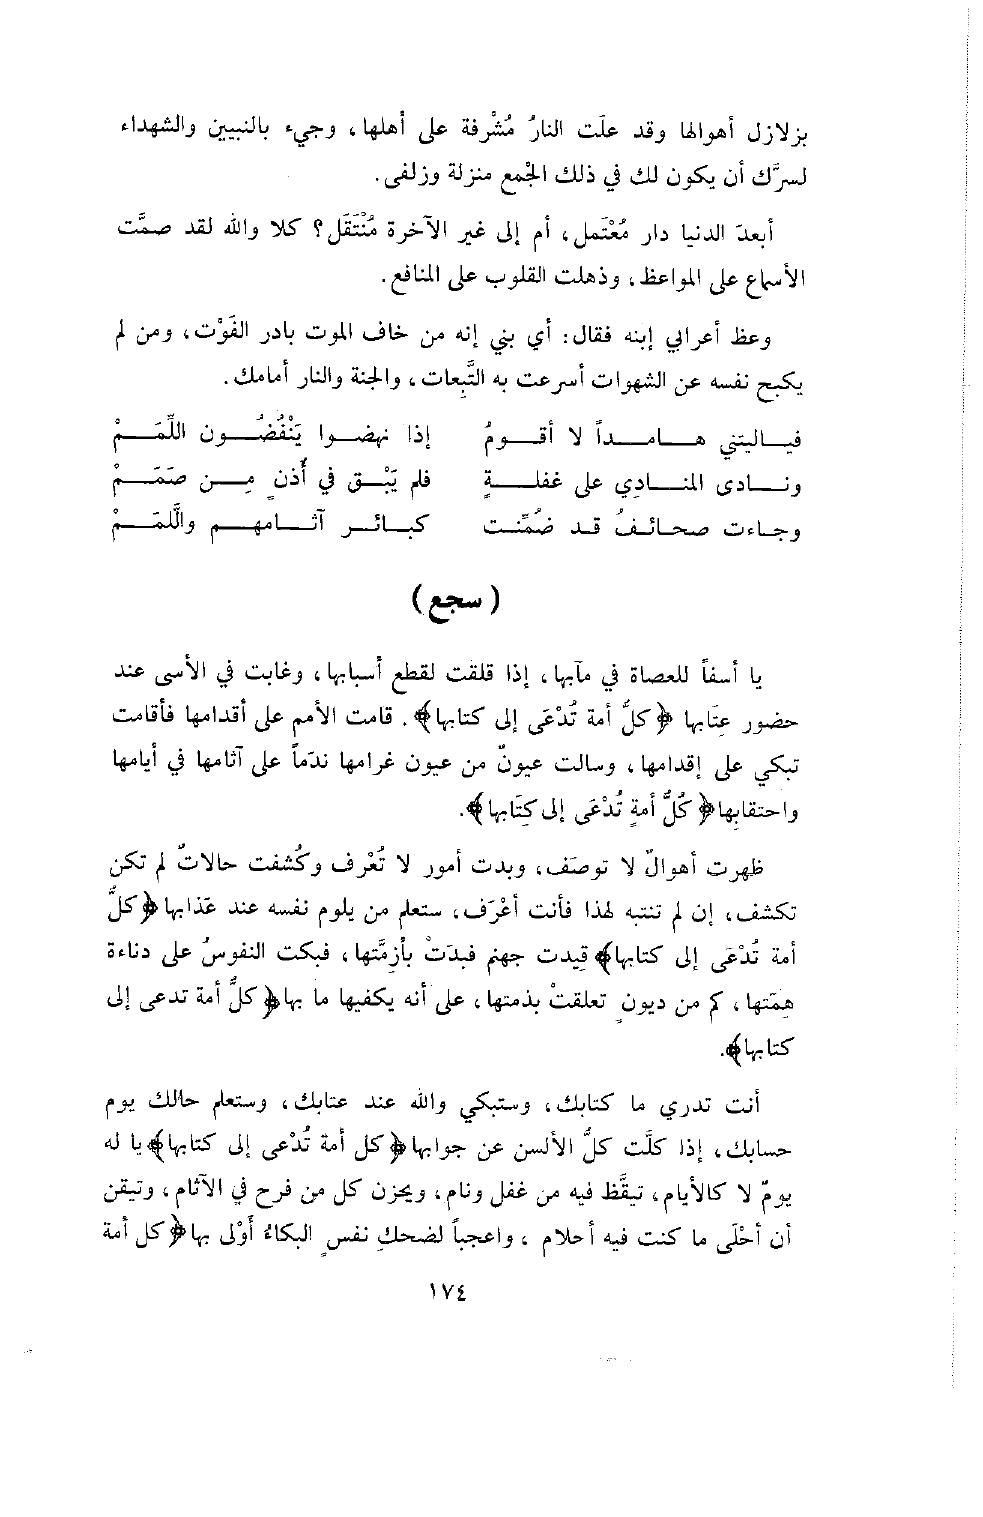 بزلازل أهوالها وقد علَت النارُ مُشْرفة على أهلها، وجيء بالنبيين والشهداء
لسرَّك أن يكون لك في ذلك الجْمع منزلة وزلفى.
أبعدَ الدنيا دار مُعْتَمل، أم إلى غير الآخرة مُنْتَقَل؟ كلا والله لقد صمَّت
الأسماع على المواعظ، وذهلت القلوب على المنافع.
وعظ أعرابي إبنه فقال: أي بني إنه من خاف الموت بادر الفَوْت، ومن لم
يكبح نفسه عن الشهوات أسرعت به التَّبِعات، والجنة والنار أمامك.
فيـاليتني هـامـداً لا أقـومُ إذا نهضـوا يَنْفُضُـون اللِّمَـمْ
ونـادى المنـادِي على غفلـةٍ فلم يَبْـق في أُذنٍ مِـن صَمَـمْ
وجـاءت صحائـفُ قـد ضُمِّنـت كبـائـر آثـامهـم واللَّمَـمْ
( سجع )
يا أسفاً للعصاة في مآبها، إذا قلقت لقطع أسبابها، وغابت في الأسى عند
حضور عِتَابها ﴿كلُّ أمة تُدْعَى إلى كتابها﴾. قامت الأمم على أقدامها فأقامت
تبكي على إقدامها، وسالت عيونٌ من عيون غرامها ندَماً على آثامها في أيامها
واحتقابِها ﴿كُلُّ أمةٍ تُدْعَى إلى كتَابِها﴾.
ظهرت أهوالٌ لا توصَف، وبدت أمور لا تُعْرف وكُشفت حالاتٌ لم تكن
تكشف، إن لم تنتبه لهذا فأنت أعْرَف، ستعلم من يلوم نفسه عند عَذابها ﴿كلُّ
أمة تُدْعَى إلى كتابها﴾ قيدت جهنم فبدَتْ بأزِمَّتها، فبكت النفوسُ على دناءة
هِمَّتها، كم من ديونٍ تعلقتْ بذمتها، على أنه يكفيها ما بها ﴿كلُّ أمة تدعى إلى
كتابها﴾.
أنت تدري ما كتابك، وستبكي والله عند عتابك، وستعلم حالك يوم
حسابك، إذا كلَّت كلُّ الألسن عن جوابها ﴿كل أمة تُدْعى إلى كتابها﴾ يا له
يومٌ لا كالأيام، تيقَّظ فيه من غفل ونام، ويحزن كل من فرح في الآثام، وتيقن
أن أحْلَى ما كنت فيه أحلام ، واعجباً لضحكِ نفسٍ البكاءُ أَوْلى بها ﴿كل أمة
١٧٤